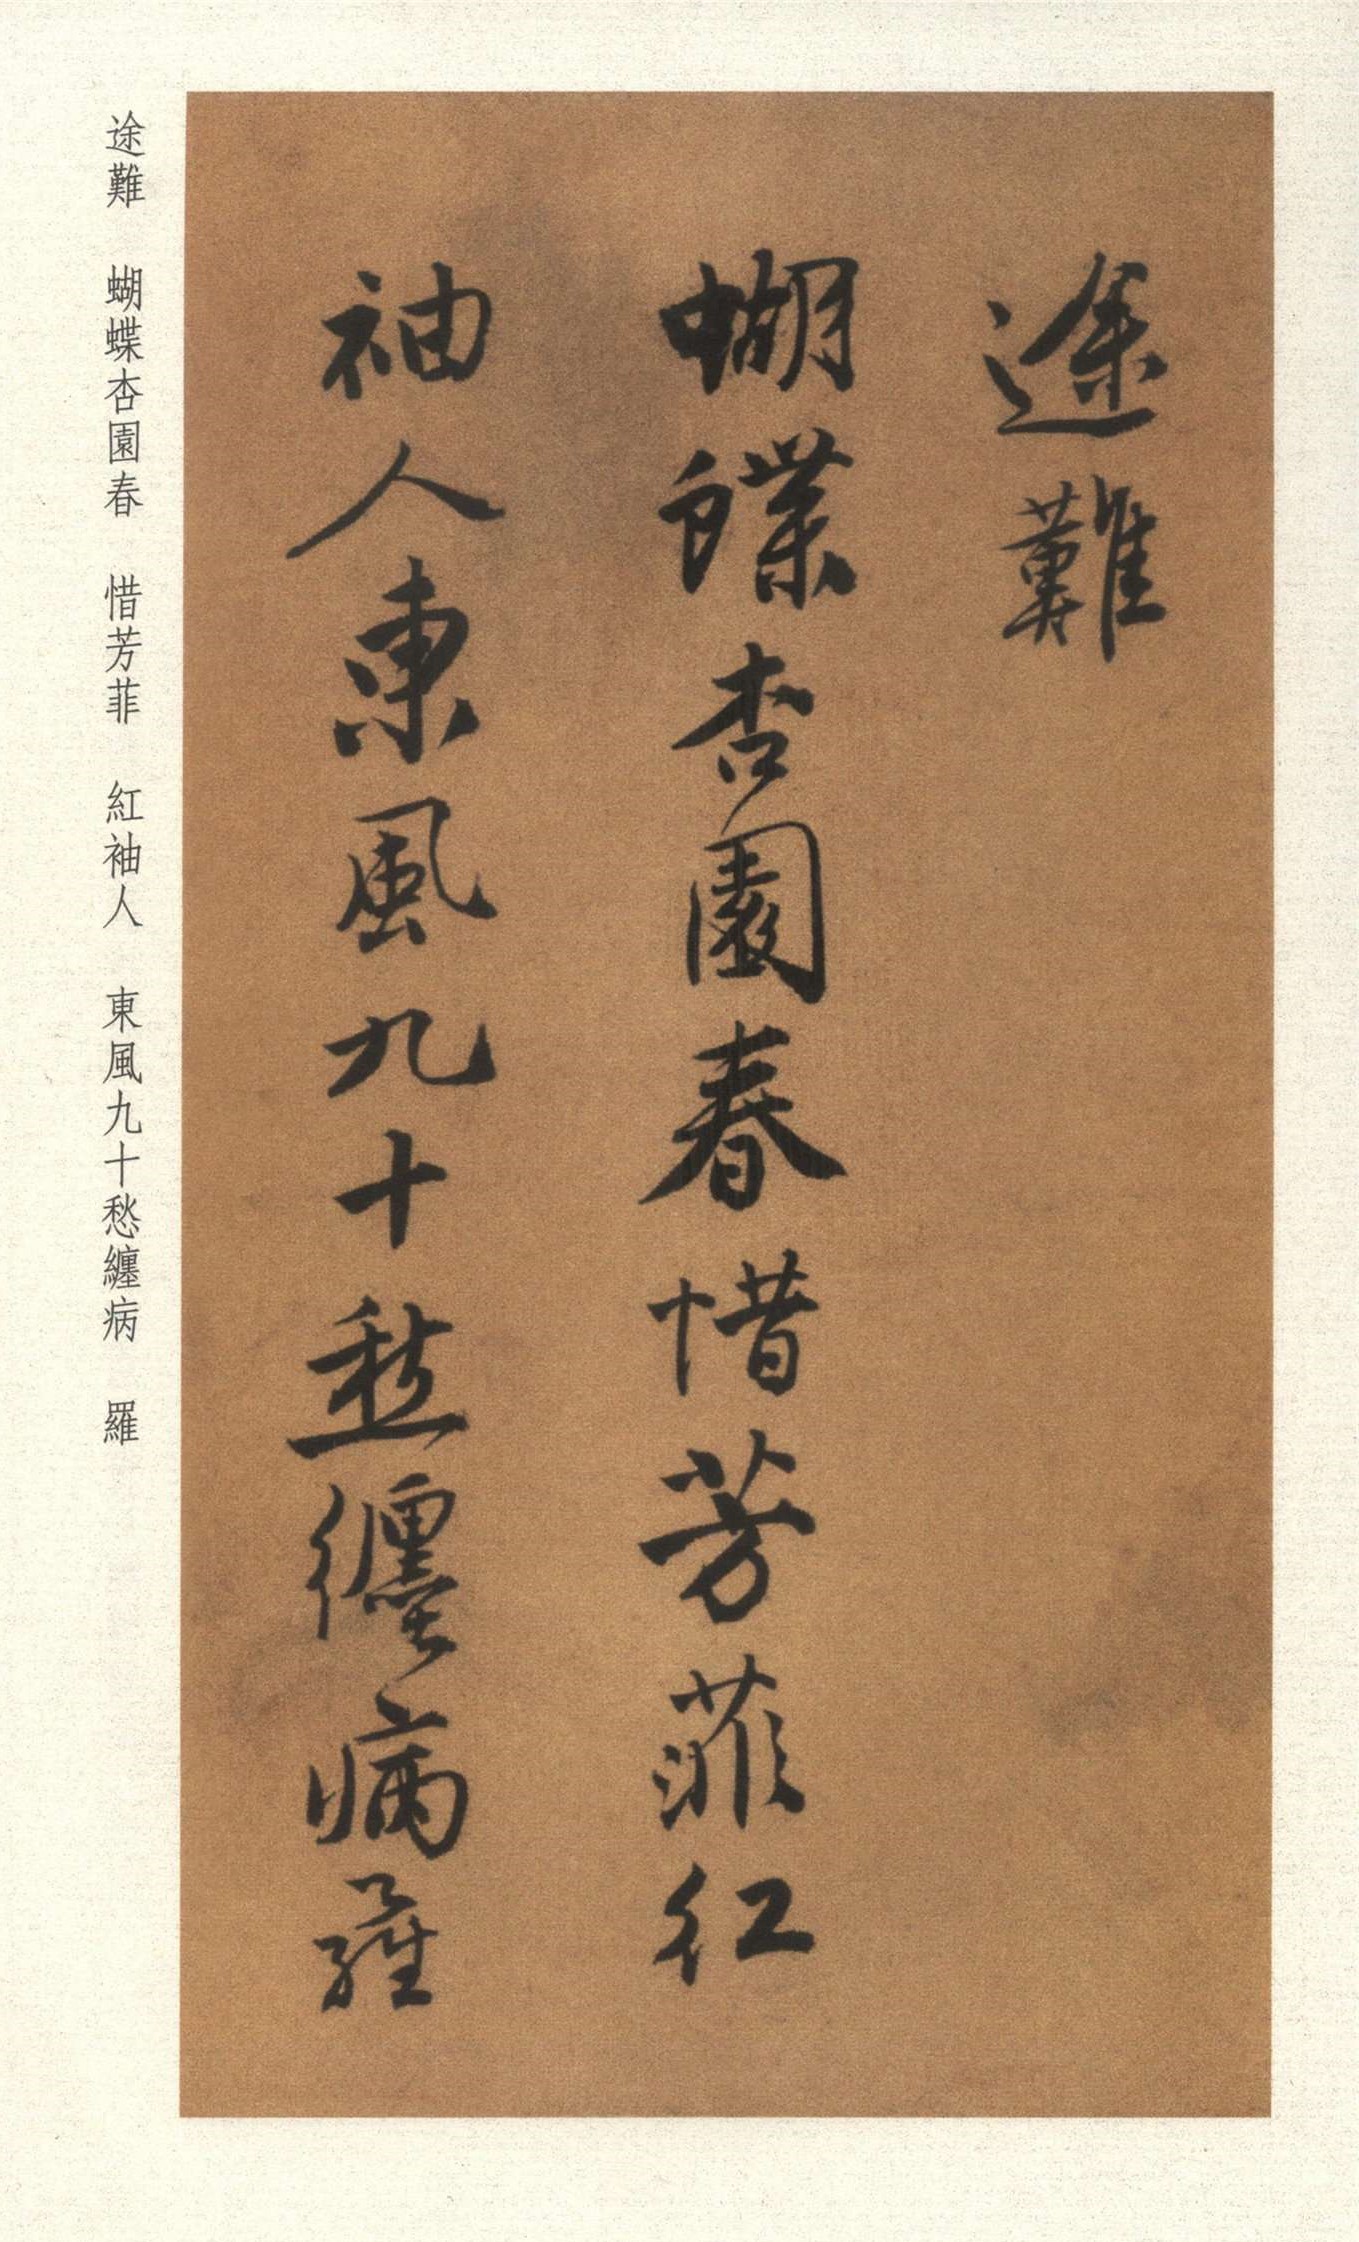 途難
蝴蝶杏園春惜芳菲紅
袖人東風九十愁纏病羅
途難　蝴蝶杏園春　惜芳菲　紅袖人　東風九十愁纏病　羅